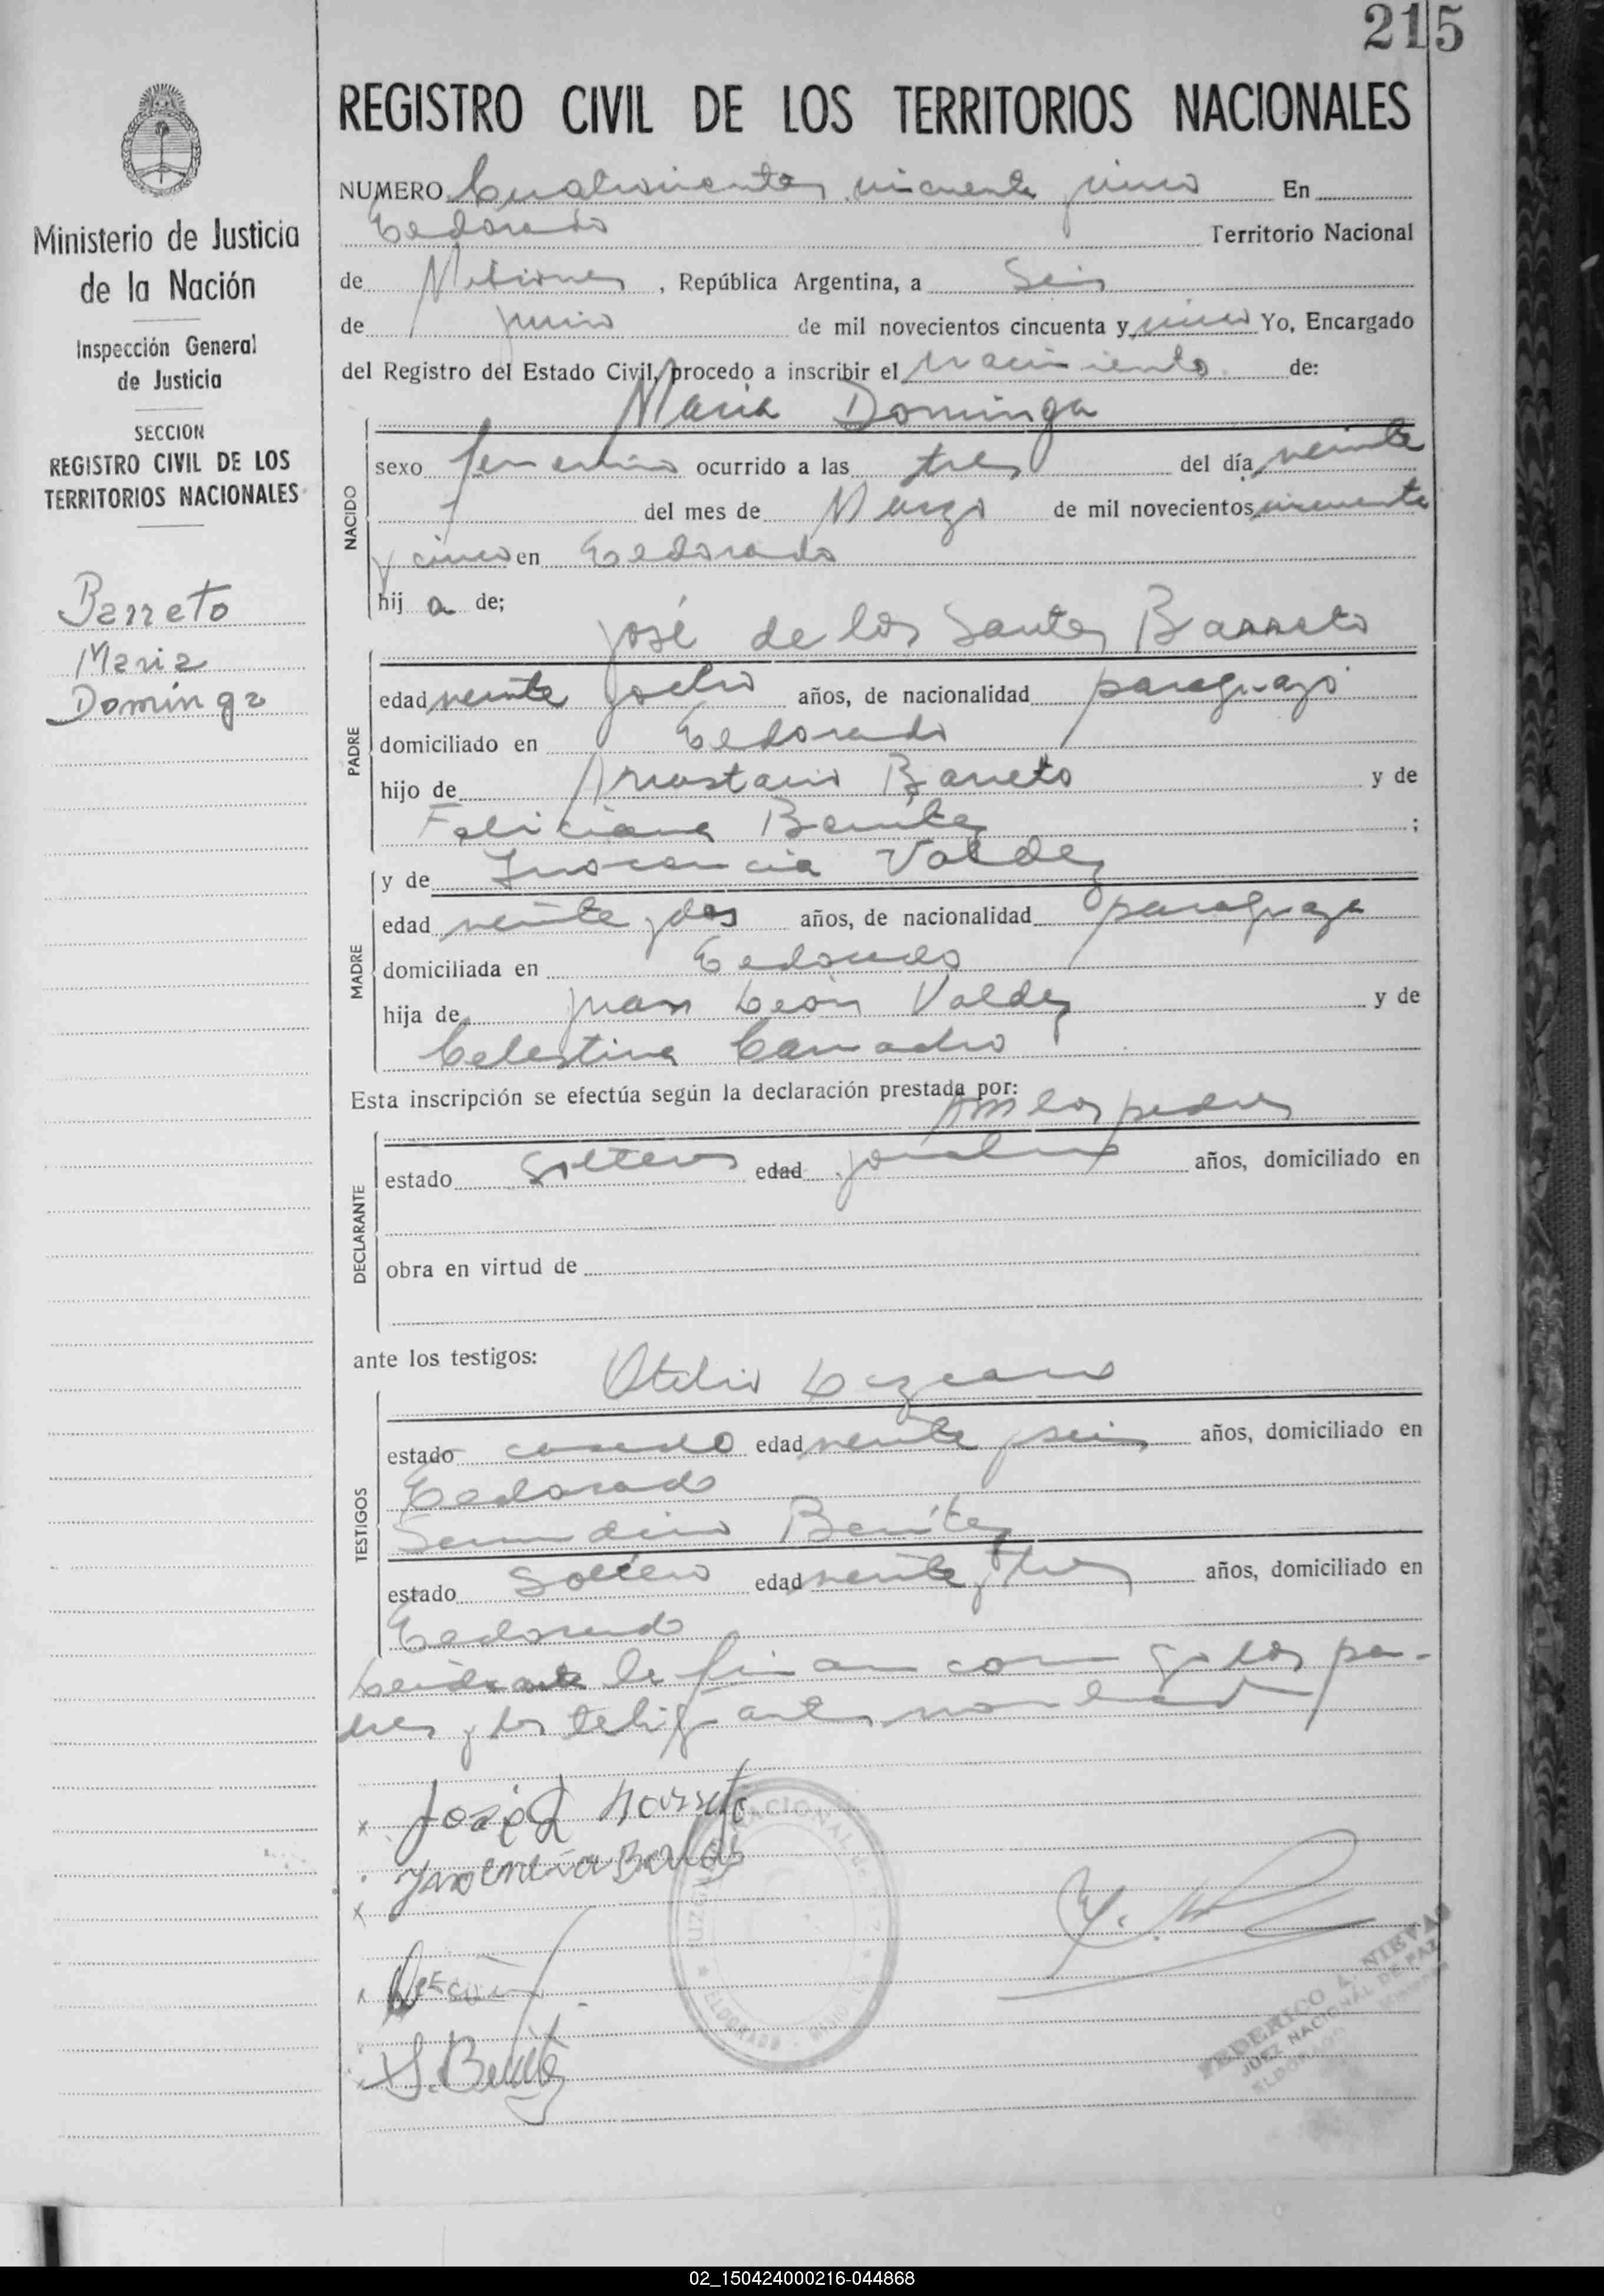 215
REGISTRO CIVIL DE LOS TERRITORIOS NACIONALES
Ministerio de Justicia
de la Nación
Inspección General
de Justicia
SECCION
REGISTRO CIVIL DE LOS
TERRITORIOS NACIONALES
Barreto
Maria
Dominga
NUMERO Cuatrocientos cincuenta y cinco En
Eldorado Territorio Nacional
de Misiones, República Argentina, a Seis
de junio de mil novecientos cincuenta y cinco Yo, Encargado
del Registro del Estado Civil, procedo a inscribir el nacimiento de:
Maria Dominga
NACIDO
sexo femenino ocurrido a las tres del día veinte
del mes de Marzo de mil novecientos cincuenta
y cinco en Eldorado
hij a de;
José de los Santos Barreto
PADRE
edad veinte y ocho años, de nacionalidad paraguayo
domiciliado en Eldorado
hijo de Anastacio Barreto y de
Feliciana Benitez ;
y de Inocencia Valdez
MADRE
edad veinte y dos años, de nacionalidad paraguaya
domiciliada en Eldorado
hija de Juan León Valdez y de
Celestina Camacho
Esta inscripción se efectúa según la declaración prestada por:
Am los padres
DECLARANTE
estado solteros edad años, domiciliado en
obra en virtud de
ante los testigos:
Otilio Lezcano
TESTIGOS
estado casado edad veinte y seis años, domiciliado en
Eldorado
Benitez
estado Soltero edad veinte y tres años, domiciliado en
Eldorado
Leida acta la firman conmigo los pa-
dres y los testigos antes nombrados
José d Barreto
Inocencia
S. Benitez
JUZGADO NACIONAL DE PAZ
ELDORADO
FEDERICO A. NIEVAS
JUEZ NACIONAL DE PAZ
ELDORADO
02_150424000216-044868